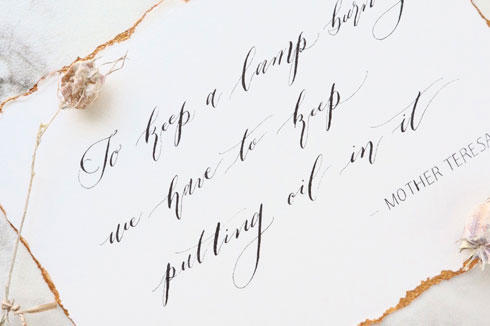 To keep a lamp burning
we have to keep
putting oil in it
- MOTHER TERESA